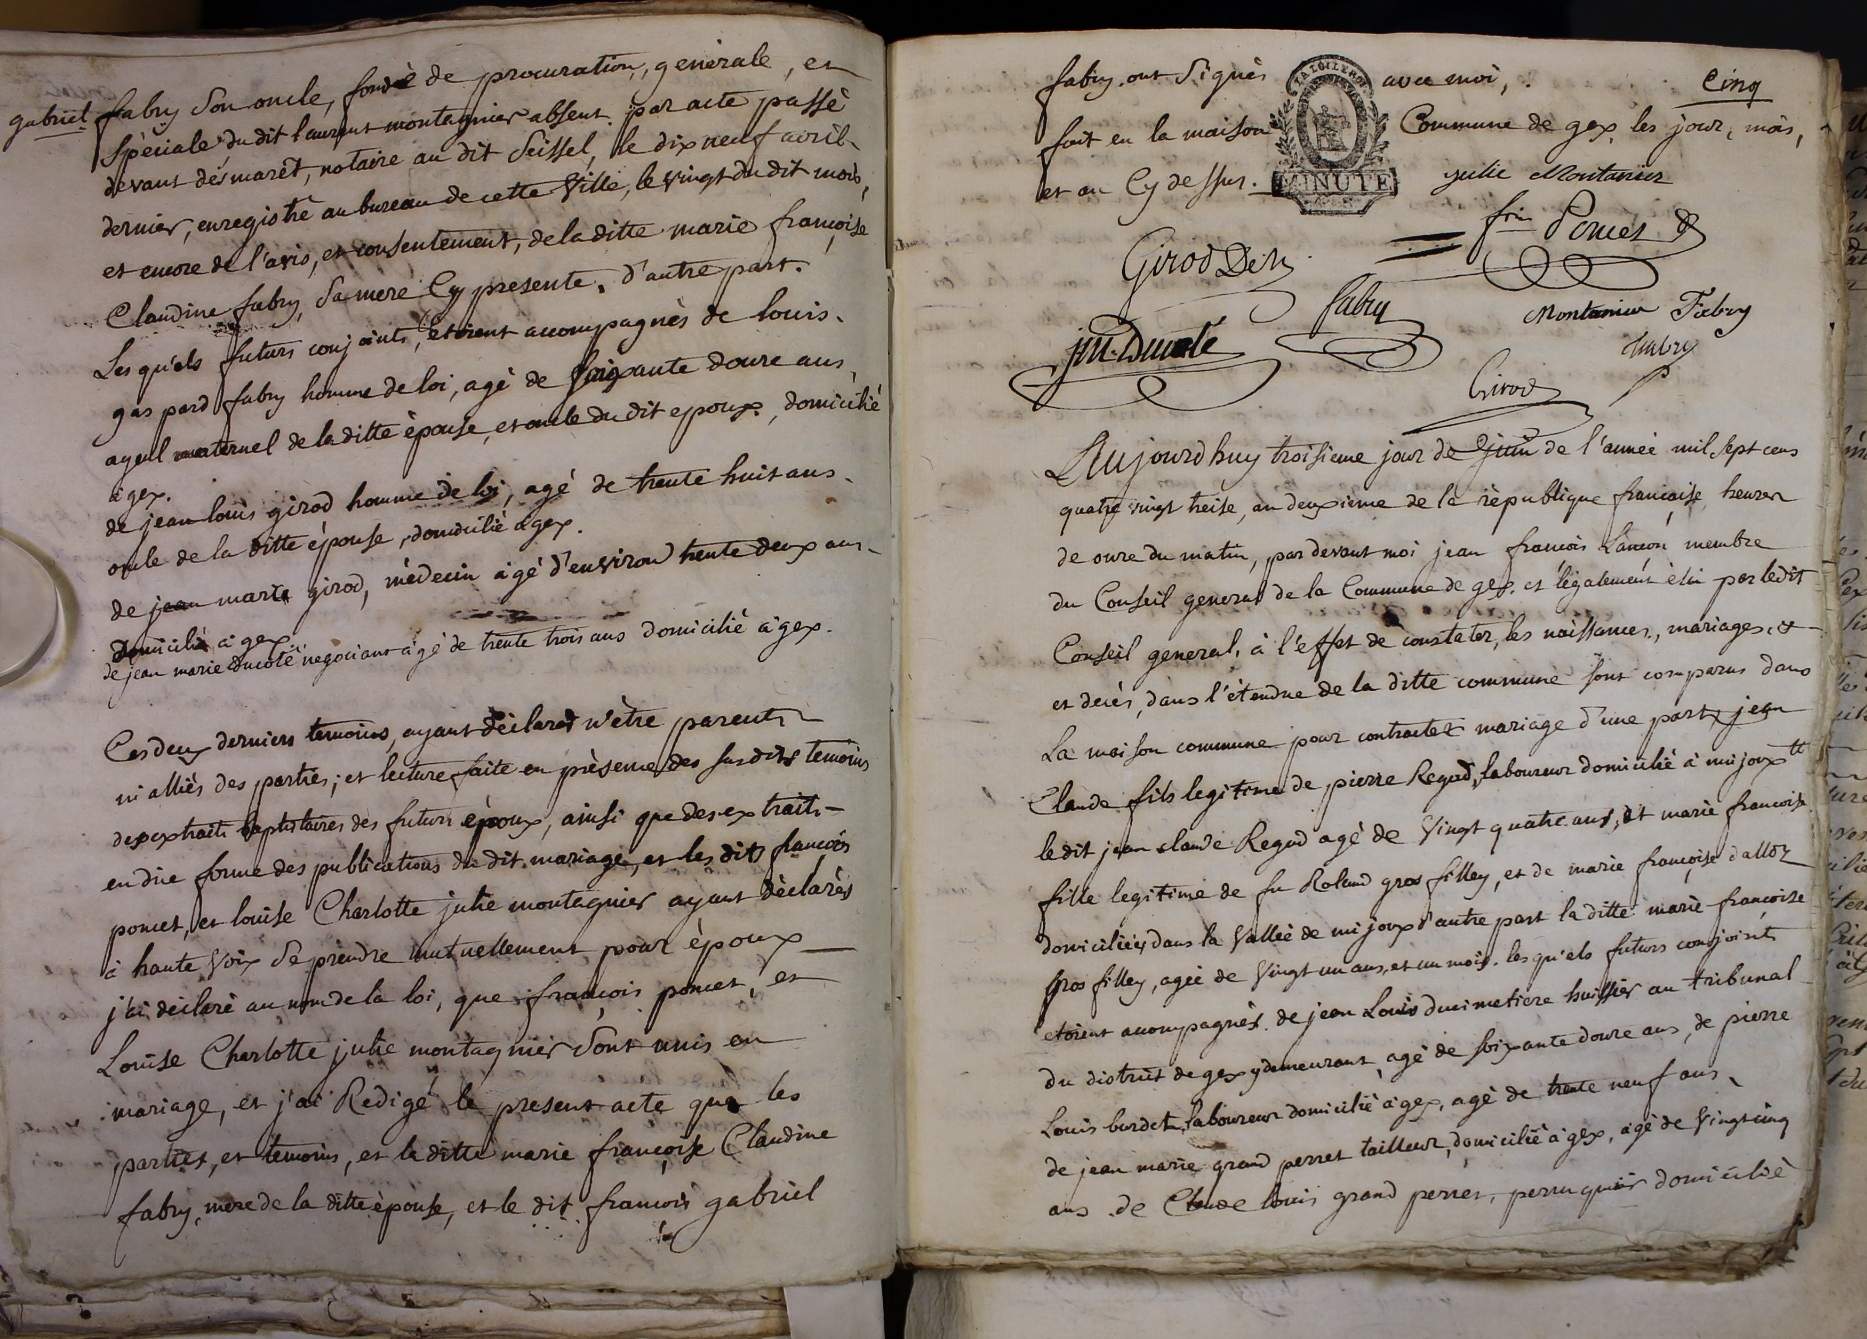 gabriel fabry son oncle, fondé de procuration, generale, et
speciale du dit laurent montagnier absent. par acte passé
devant désmarêt, notaire au dit Seissel, le dix neuf avril
dernier, enregistré au bureau de cette Ville, le vingt du dit mois,
et encore de l'avis, et consentement, de la ditte marie françoise
Claudine fabry, sa mere Cy presente, d'autre part.
Lesquels futurs conjoints, etoient accompagnés de louis
gaspard fabry homme de loi, agé de soixante douze ans,
ayeul maternel de la ditte épouse, et oncle du dit epoux, domicilié
à gex.
de jean louis girod homme de loi, agé de trente huit ans
oncle de la ditte épouse, domicilié à gex.
de jean marie girod, médecin agé d'environ trente deux ans
domicilié à gex.
de jean marie Ducoté negociant agé de trente trois ans domicilié à gex.
Ces deux derniers temoins, ayant déclarés n'être parents
ni alliés des parties; et lecture faite en présence des susdits temoins
des extraits baptistaires des futurs époux, ainsi que des extraits
en due forme des publications du dit mariage, et les dits françois
poncet, et louise Charlotte julie montagnier ayant déclarés
à haute Voix se prendre mutuellement pour époux
j'ai déclaré au nom de la loi, que françois poncet, et
Louise Charlotte julie montagnier sont unis en
mariage, et j'ai Redigé le present acte que les
parties, et temoins, et la ditte marie françoise Claudine
fabry, mere de la ditte épouse, et le dit françois gabriel
Cinq
fabry. ont signés avec moi,
fait en la maison Commune de gex, les jour, mois,
et an Cy dessus.
MINUTE
julie Montanier
fçois Poncet
Girod
fabry
Montanier Fabry
jM. Ducoté
fabry
Girod
Aujourdhuy troisieme jour de Juin de l'année mil sept cens
quatre vingt treise, an deuxieme de la république française heures
de onze du matin, par devant moi jean françois Lançon membre
du Conseil general de la Commune de gex, et légalement élu par ledit
Conseil general, à l'effet de constater, les naissances, mariages, et
et décés, dans l'étendue de la ditte commune sont comparus dans
La maison commune pour contracter mariage d'une part, jean
Claude fils legitime de pierre Regad, laboureur domicilié à mijoux
le dit jean claude Regad agé de Vingt quatre ans, et marie françoise
fille legitime de fu Roland gros filley, et de marie françoise dalloz
domiciliés dans la Vallée de mijoux d'autre part la ditte marie françoise
gros filley, agée de Vingt un ans, et un mois. lesquels futurs conjoints
etoient accompagnés. de jean Louis ducimetiere huissier au tribunal
du district de gex y demeurant, agé de soixante douze ans, de pierre
Louis burdet, laboureur domicilié à gex, agé de trente neuf ans,
de jean marie grand perret tailleur, domicilié à gex, agé de Vingt cinq
ans. de Claude louis grand perret, perruquier domicilié